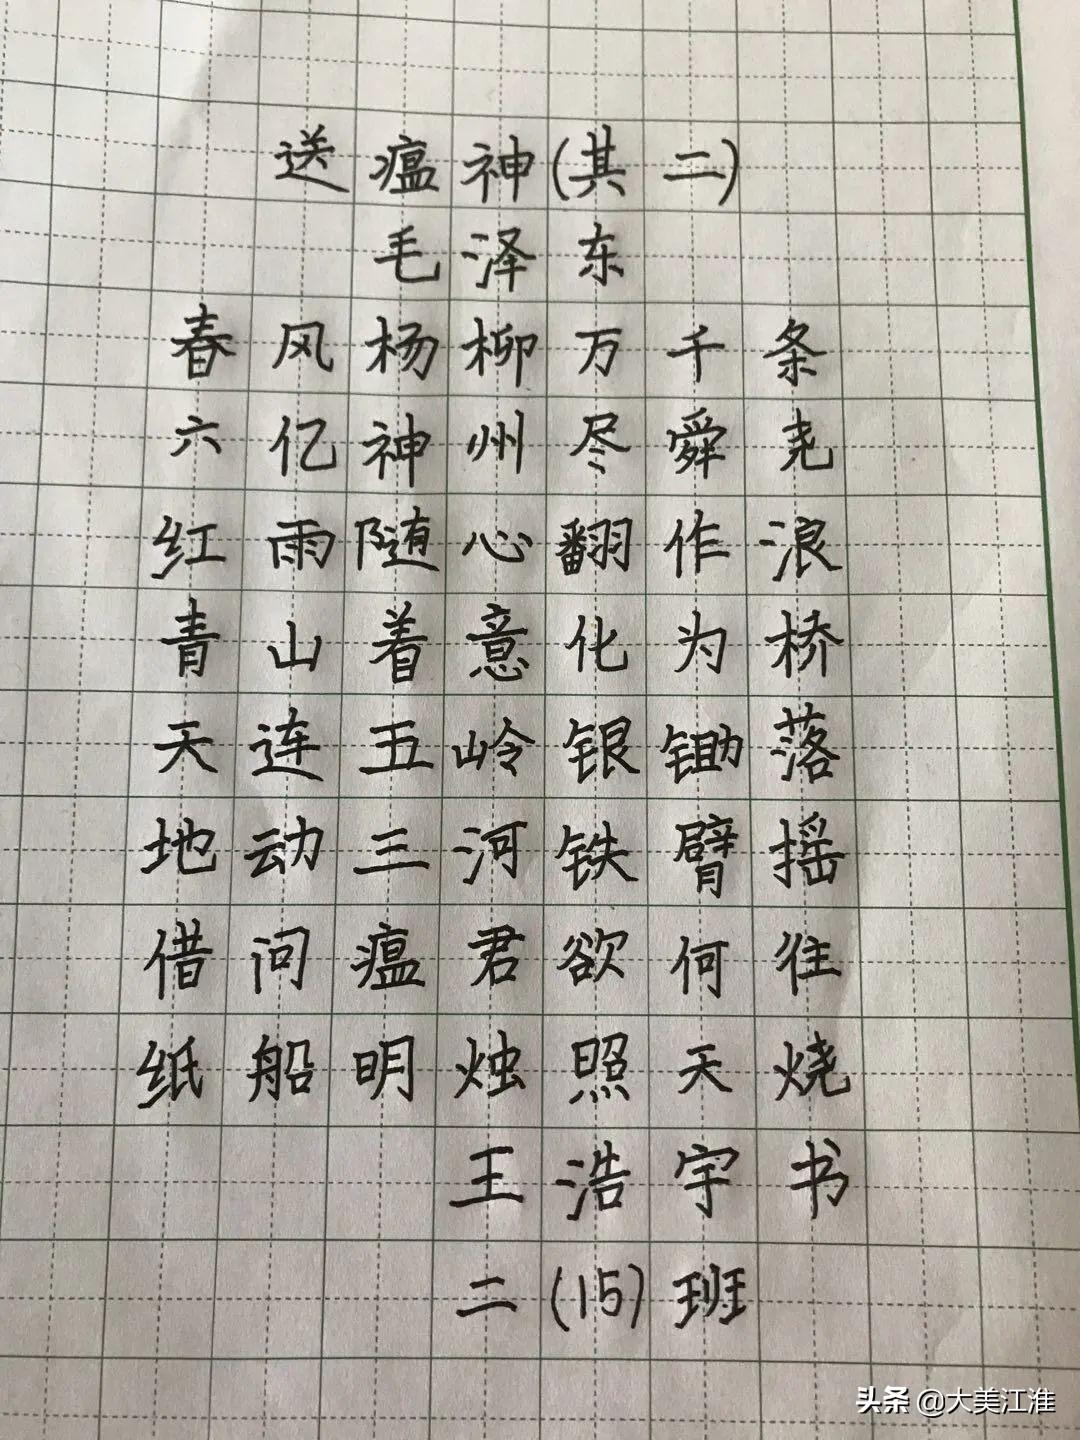 送瘟神(其二)
毛泽东
春风杨柳万千条
六亿神州尽舜尧
红雨随心翻作浪
青山着意化为桥
天连五岭银锄落
地动三河铁臂摇
借问瘟君欲何往
纸船明烛照天烧
王浩宇书
二(15)班
头条 @大美江淮